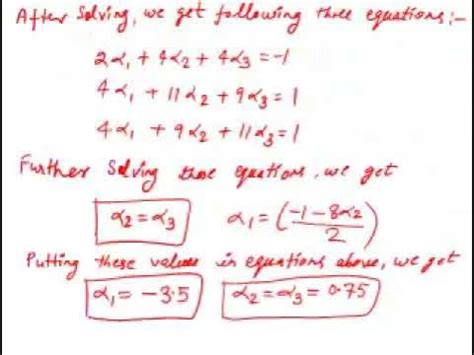 After Solving, we get following three equations:-
2α₁ + 4α₂ + 4α₃ = -1
4α₁ + 11α₂ + 9α₃ = 1
4α₁ + 9α₂ + 11α₃ = 1
Further Solving these equations, we get
α₂ = α₃ α₁ = (-1-8α₂/2)
Putting these values in equations above, we get
α₁ = -3.5 α₂ = α₃ = 0.75